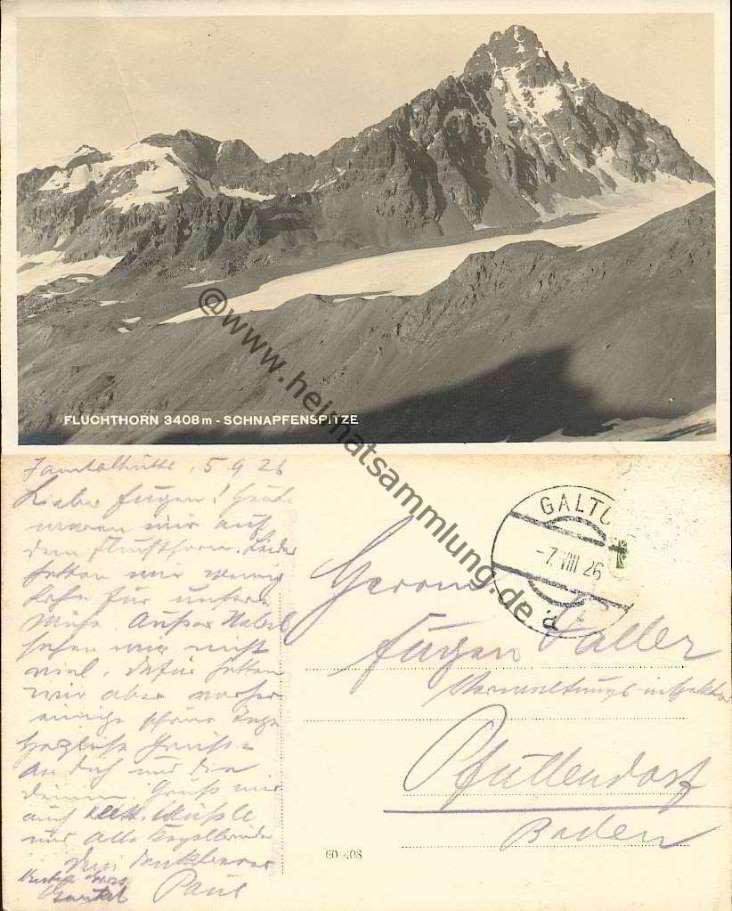 FLUCHTHORN 3408 m - SCHNAPFENSPITZE
@www.heimatsammlung.de
Jamtalhütte, 5.9.26
Lieber Eugen! Heute
waren wir auf
dem Fluchthorn. Leider
hatten wir wenig
Lohn für unsere
Mühe. Außer Nebel
sahen wir nicht
viel. Dafür hatten
wir aber vorher
einige schöne Tage
Herzliche Grüße
an dich und die
deinen. Gruß mir
auch
und alle
Dein
Paul
GALTÜ
-7.VIII 26
Herrn
Eugen
Verwaltungsinspektor
Pfullendorf
Baden
60 408